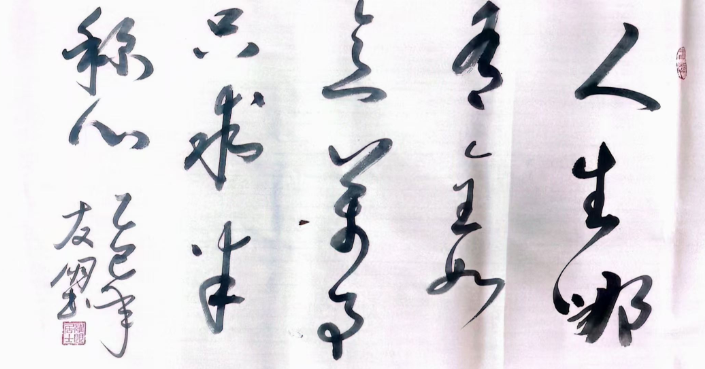 人生哪
有全如
意万事
只求半
称心
乙巳年
友